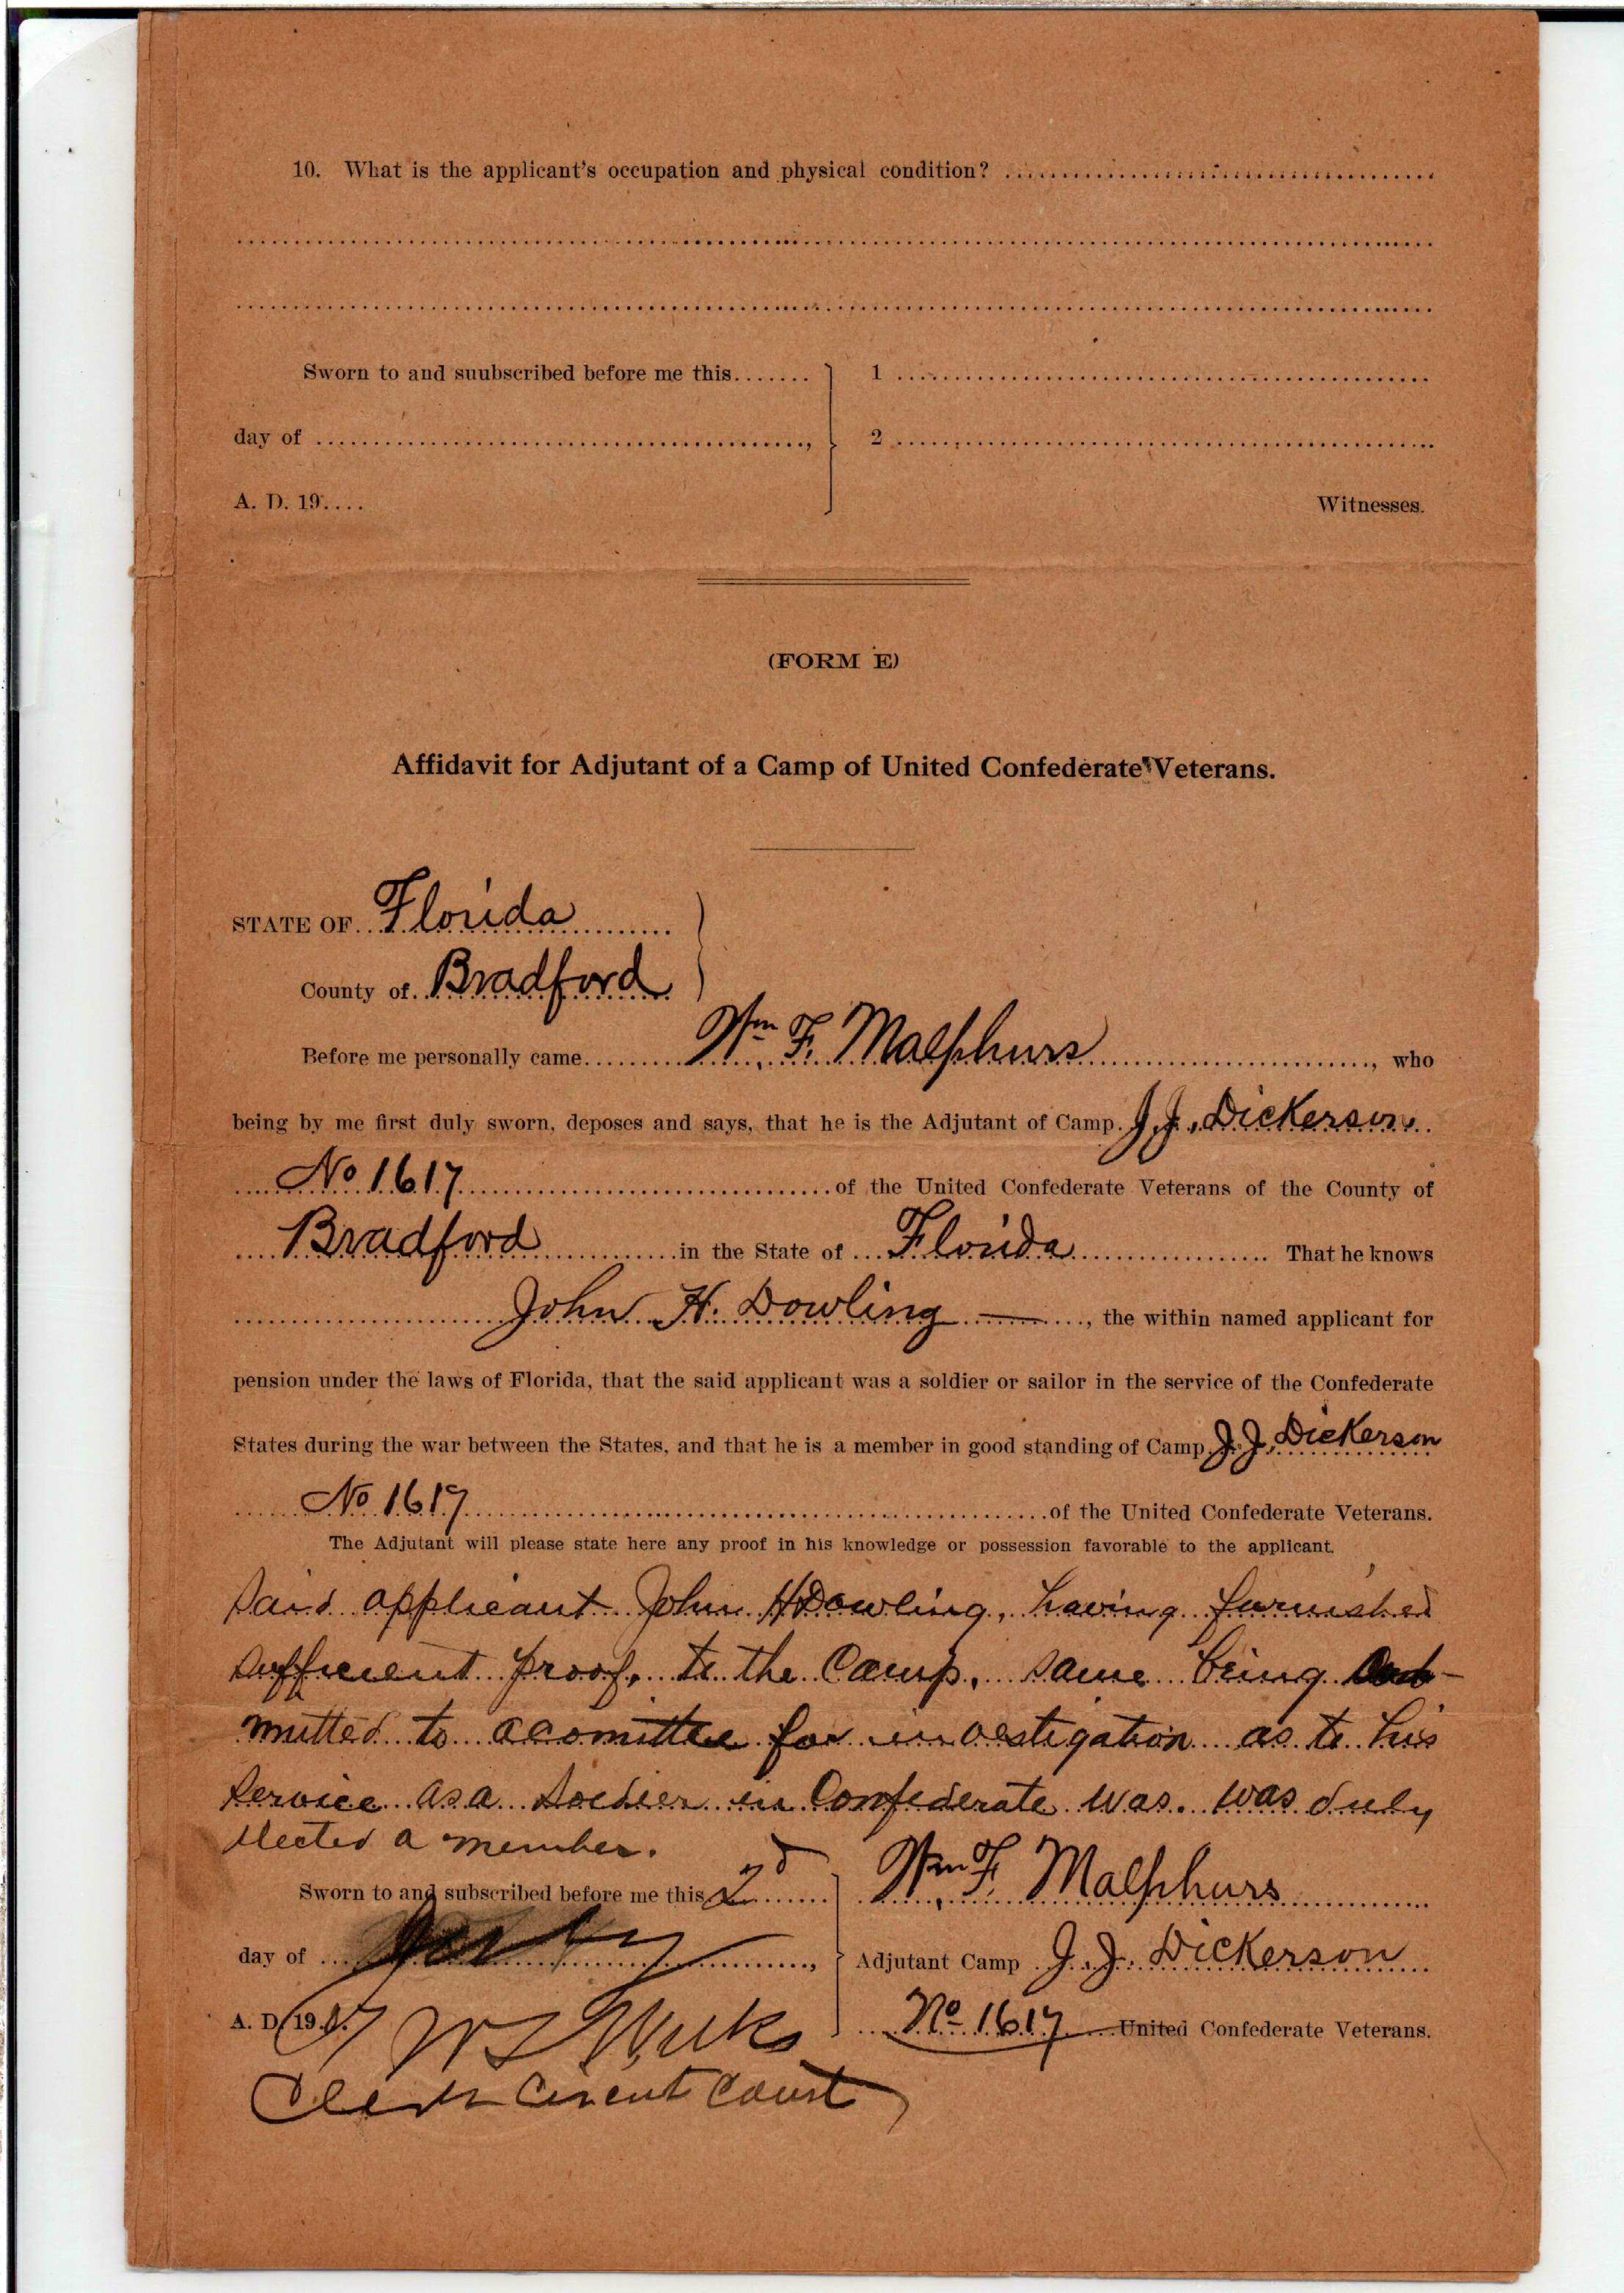 10. What is the applicant's occupation and physical condition?
Sworn to and suubscribed before me this....... 1
day of ......, 2
A. D. 19....
Witnesses.
(FORM E)
Affidavit for Adjutant of a Camp of United Confederate Veterans.
STATE OF Florida
County of Bradford
Before me personally came Wm. F. Malphurs, who
being by me first duly sworn, deposes and says, that he is the Adjutant of Camp J. J. Dickerson
No 1617 of the United Confederate Veterans of the County of
Bradford in the State of Florida That he knows
John H. Dowling —, the within named applicant for
pension under the laws of Florida, that the said applicant was a soldier or sailor in the service of the Confederate
States during the war between the States, and that he is a member in good standing of Camp J. J. Dickerson
No 1617 of the United Confederate Veterans.
The Adjutant will please state here any proof in his knowledge or possession favorable to the applicant.
Said applicant John H Dowling, having furnished
sufficient proof, to the Camp, same being
mitted to a comittee for investigation as to his
service as a Soldier in Confederate was. was duly
elected a member.
Sworn to and subscribed before me this 2d Wm. F. Malphurs
day of , Adjutant Camp J. J. Dickerson
A. D. 19 No 1617 United Confederate Veterans.
Clerk Circuit Court